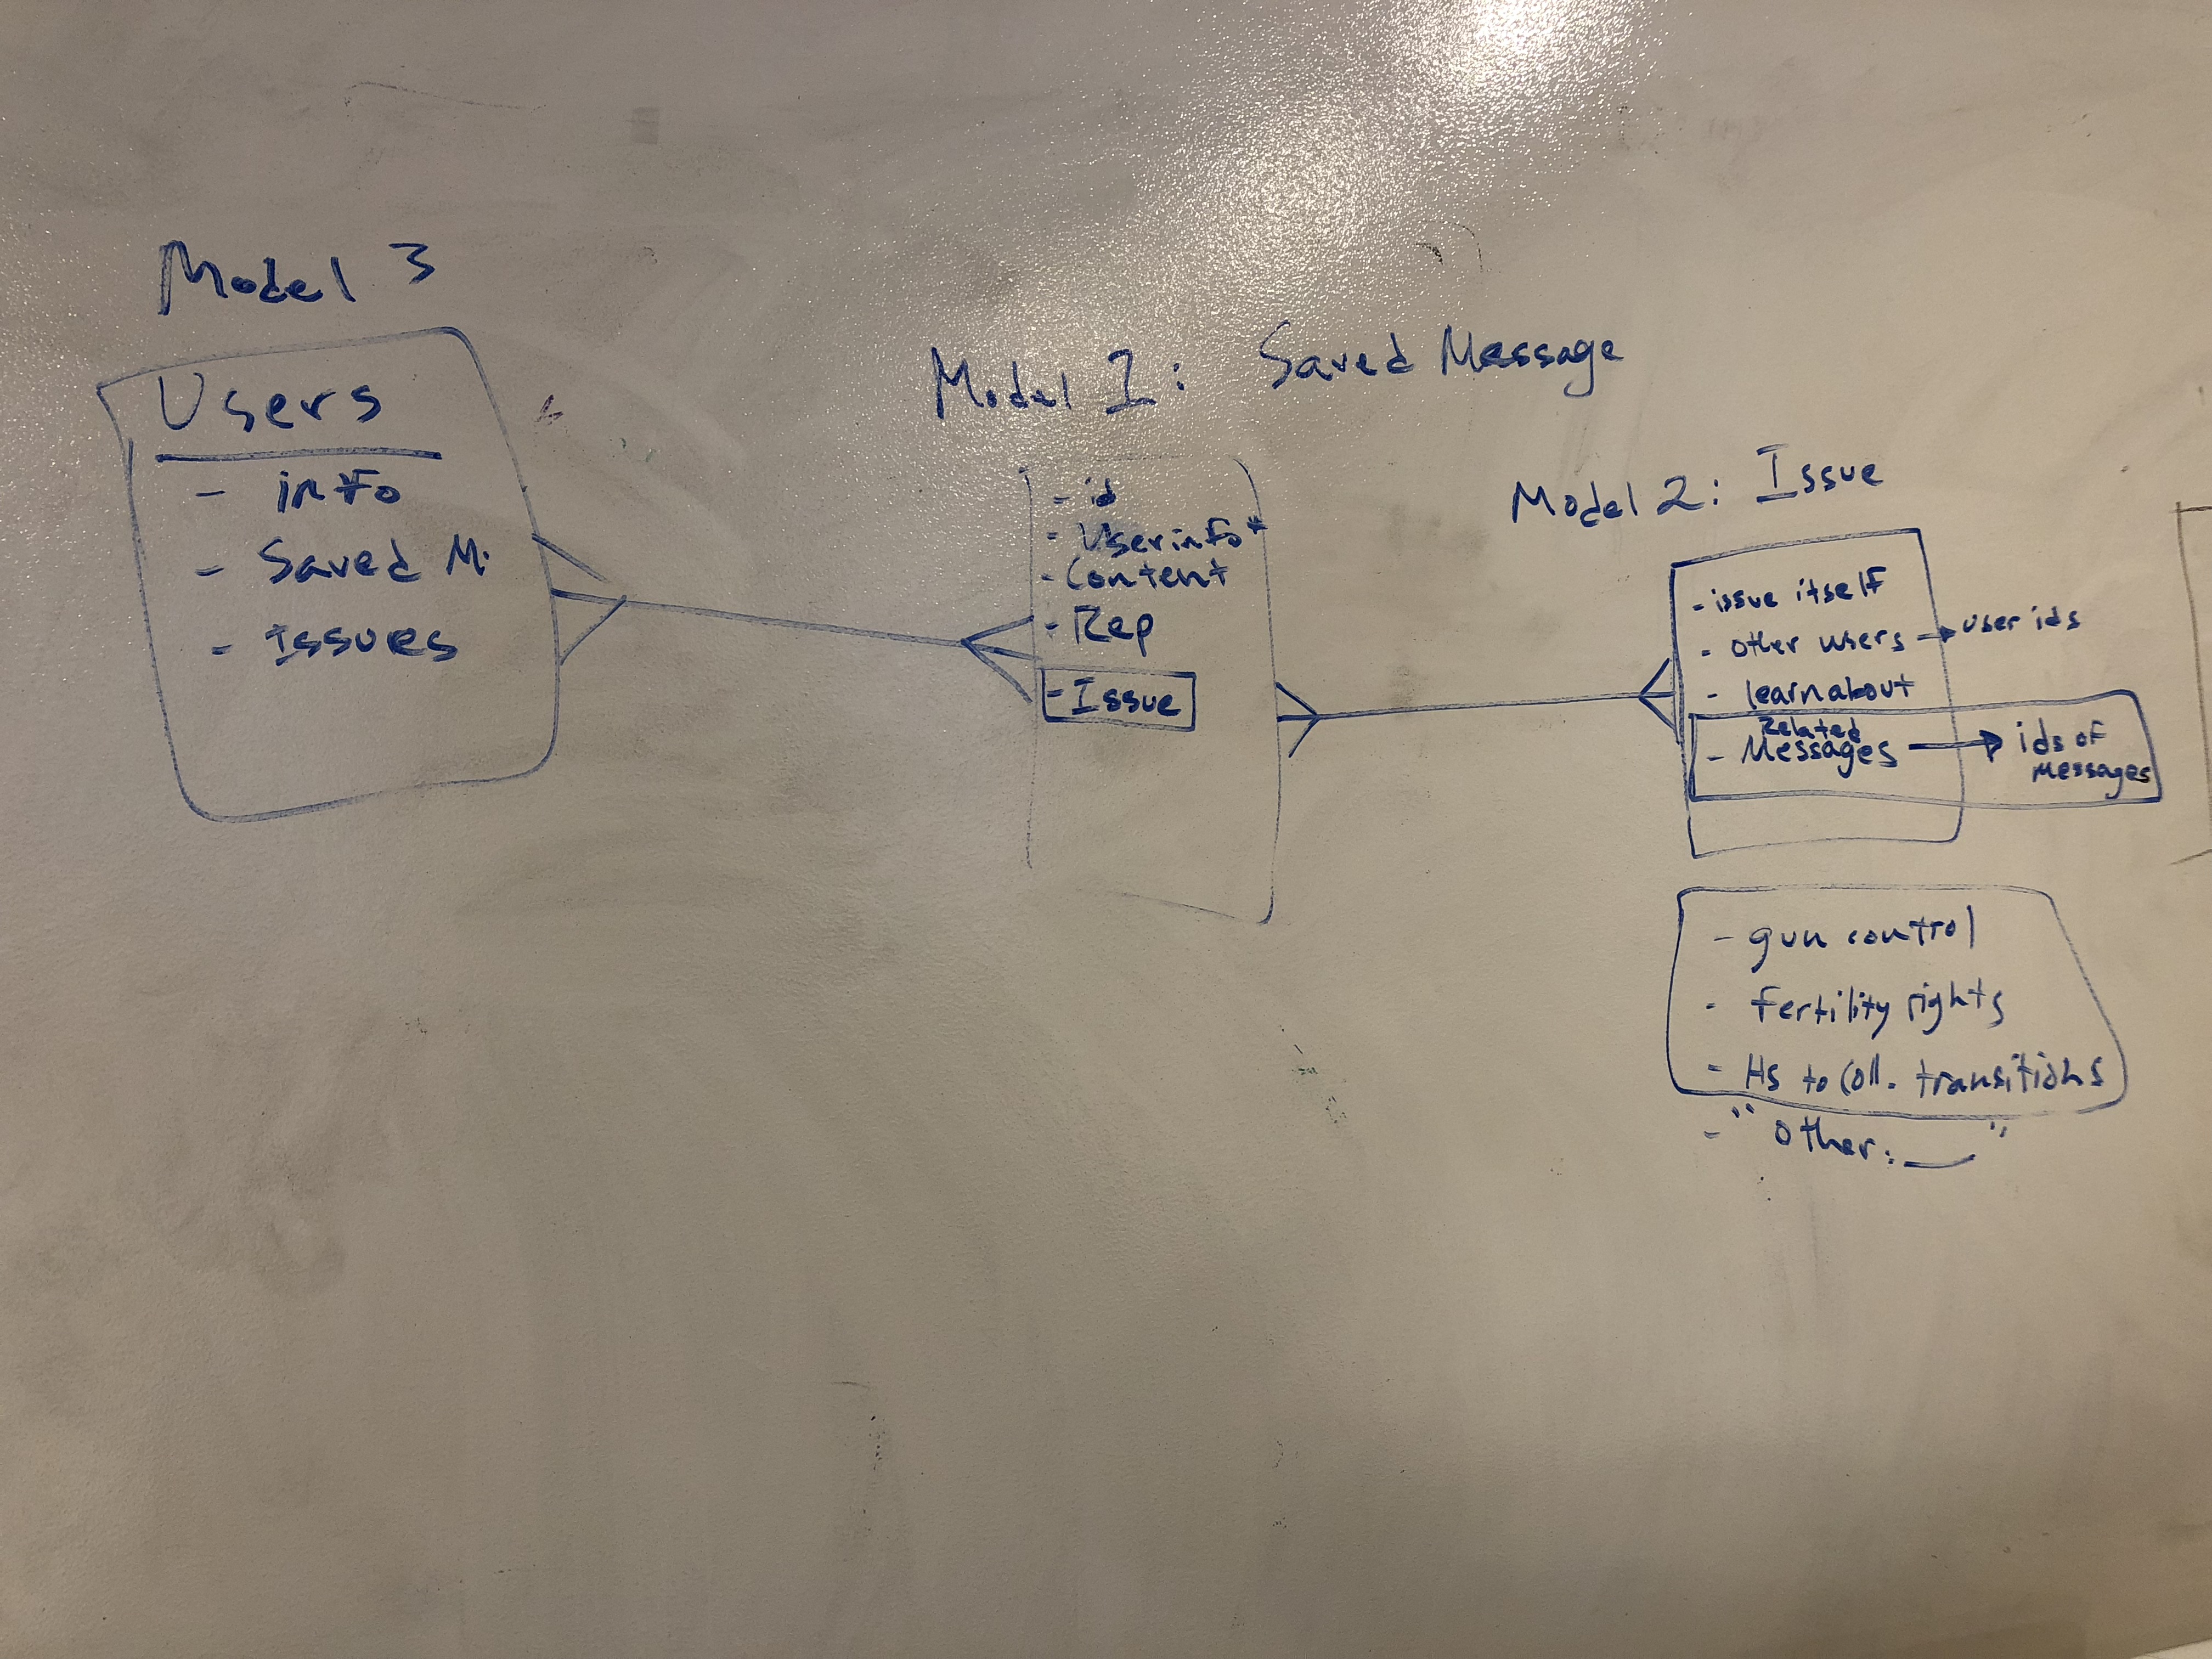 Model 3
Users
- info
- Saved M.
- Issues
Model I: Saved Message
- id
- Userinfo*
- Content
- Rep
- Issue
Model 2: Issue
- issue itself
- other users → user ids
- learn about
Related
- Messages → ids of
messages
- gun control
- fertility rights
- HS to Coll. transitions
- "Other: __"